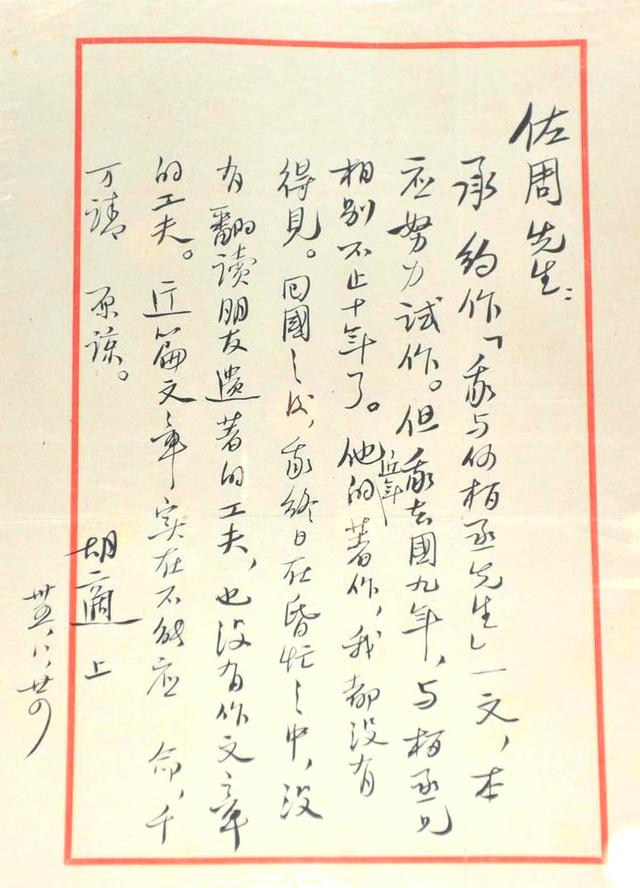 佐周先生：
承 約作「我与何柏丞先生」一文，本
应努力試作。但我去國九年，与柏丞兄
相别不止十年了。他的近年著作，我都没有
得見。回國之后，我終日在昏忙之中，没
有翻讀朋友遺著的工夫，也没有作文章
的工夫。这篇文章实在不能应 命，千
万請 原諒。
胡適上
卅五，八，廿四